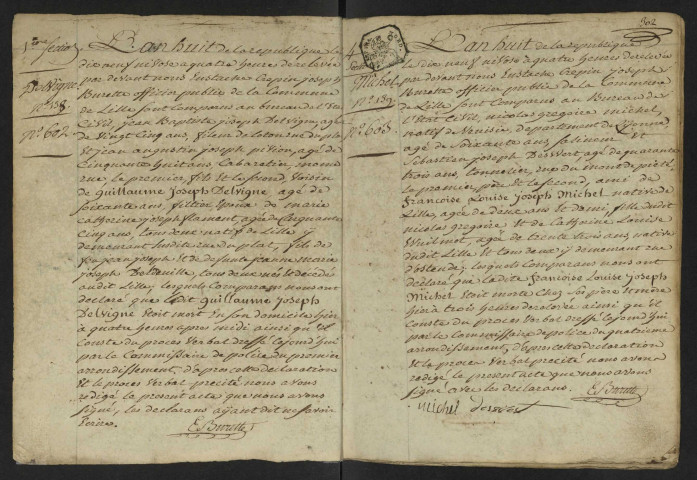 1ere Section
Delvigne
n.° 158
N.° 602
L'an huit de la republique le
dix neuf nivose a quatre heures de relevée
par devant nous Eustache Crepin Joseph
Burette officier public de la Commune
de Lille sont comparus au bureau de l'Etat
Civil, jean Baptiste joseph Delvigne, agé
de Vingt Cinq ans, fileur de coton rue du plat
et jean augustin joseph pition, agé de
Cinquante huit ans, Cabaretier, meme
rue, le premier, fils et le second, Voisin
de Guillaume Joseph Delvigne, agé de
soixante ans, filtier Epoux de marie
Catherine joseph flament, agée de Cinquante
Cinq ans, tous deux natifs de Lille y
demeurant susdite rue du plat, fils de
feu jean joseph et de defunte jeanne marie
joseph tous deux nés et décédés
audit Lille; lesquels Comparans nous ont
declaré que ledit Guillaume Joseph
Delvigne etait mort en son domicile hier
à quatre heures après midi ainsi qu'il
conste du proces verbal dressé cejourd'hui
par le Commissaire de police du premier
arrondissement, de precette declaration
et le proces verbal precité nous avons
redigé le present acte que nous avons
signé, les declarans ayant dit ne savoir
écrire.
EBurette
302
Michel
n.° 159
N.° 603
L'an huit de la republique
le dix neuf nivose à quatre heures de relevée
par devant nous Eustache Crepin Joseph
Burette officier public de la Commune
de Lille sont Comparus au Bureau de
l'Etat Civil, nicolas gregoire michel,
natif de Venisse, departement de l'yonne,
agé de soixante ans, et
Sebastien joseph Desvert agé de quarante
trois ans, tonnelier, rue du mont de pieté,
le premier, père et le second, ami de
Francoise Louise Joseph Michel native de
Lille, agée de deux ans et demi, fille dudit
nicolas gregoire et de Catherine Louise
Wuilmot, agée de trente trois ans, native
dudit Lille et tous deux y demeurant rue
d'ostende; lesquels Comparans nous ont
declaré que ladite Francoise Louise Joseph
Michel etait morte Chez son père et mère
hier à trois heures de relevée ainsi qu'il
conste du proces verbal dressé cejourd'hui
par le Commissaire de police du quatrieme
arrondissement, de precette declaration
et le proces verbal precité nous avons
redigé le present acte que nous avons
signé avec les declarans.
EBurette
Michel desvert